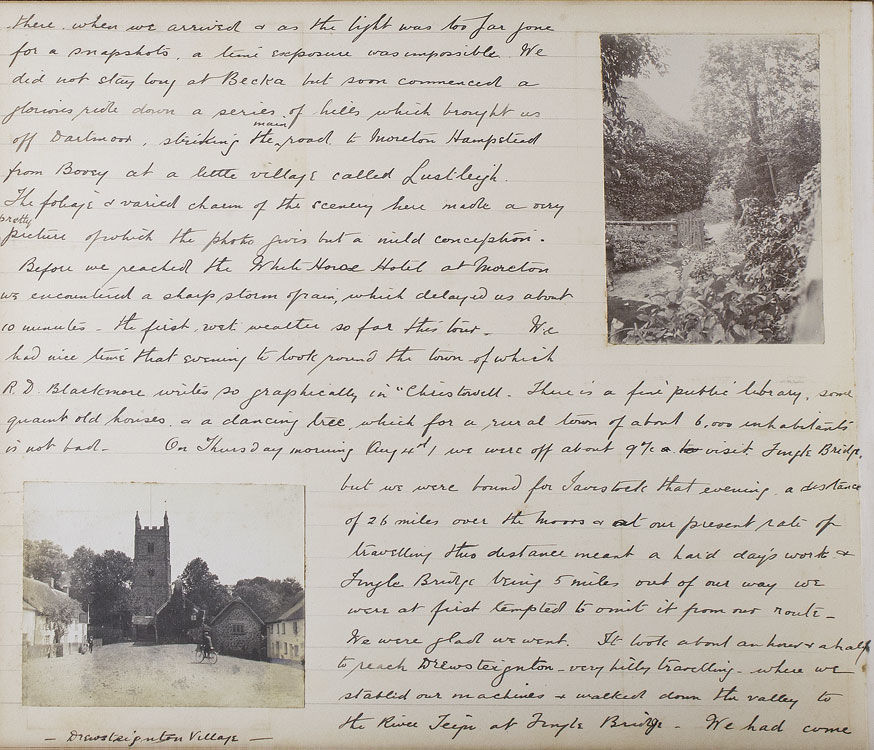 there when we arrived & as the light was too far gone
for a snapshots, a time exposure was impossible. We
did not stay long at Becka but soon commenced a
glorious ride down a series of hills which brought us
off Dartmoor, striking the main road to Moreton Hampstead
from Bovey at a little village called Lustleigh.
The foliage & varied charm of the scenery here made a very
pretty
picture of which the photo gives but a mild conception.
Before we reached the White Horse Hotel at Moreton
we encountered a sharp storm of rain, which delayed us about
10 minutes - the first wet weather so far this tour - We
had nice time that evening to look round the town of which
R. D. Blackmore writes so graphically in "Christowell. There is a fine public library, some
quaint old houses, & a dancing tree, which for a rural town of about 6,000 inhabitants
is not bad - On Thursday morning Aug 4th, we were off about to visit Fingle Bridge,
but we were bound for Tavistock that evening, a distance
of 26 miles over the moors & at our present rate of
travelling this distance meant a hard day's work &
Fingle Bridge being 5 miles out of our way we
were at first tempted to omit it from our route -
We were glad we went. It took about an hour & a half
to reach Drewsteignton - very hilly travelling - where we
stabled our machines & walked down the valley to
the River Teign at Fingle Bridge - We had come
- Drewsteignton Village -